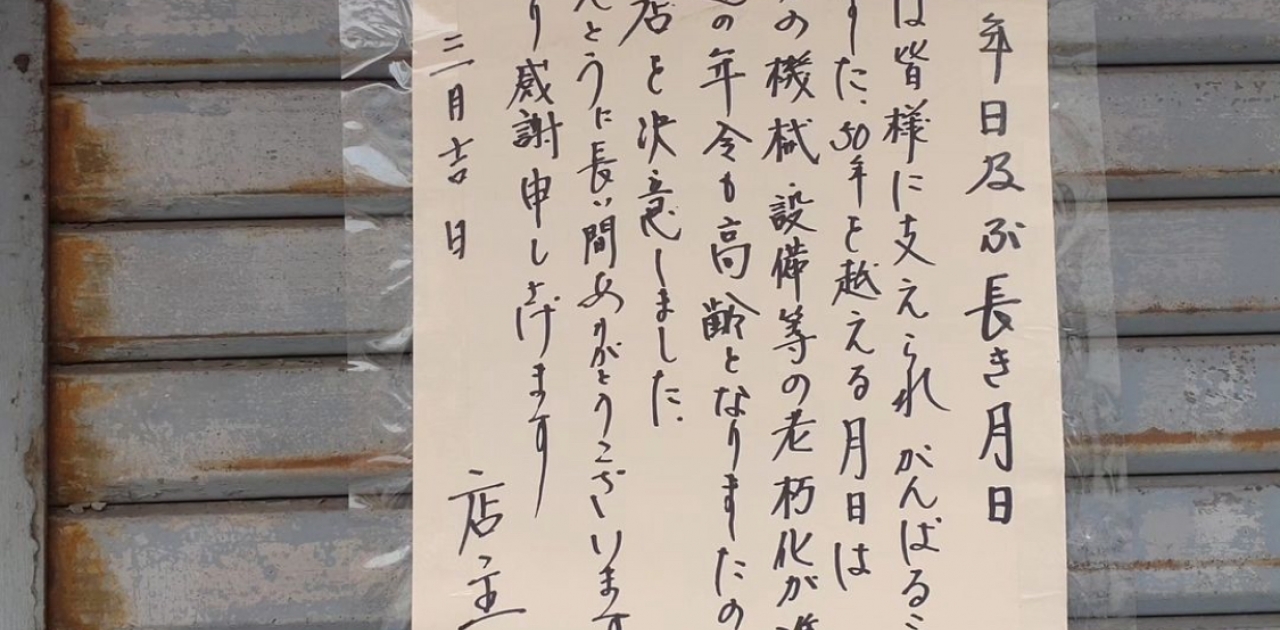 年日及ぶ長き月日
は皆様に支えられがんばるこ
した、50年を越える月日は
の機械設備等の老朽化が進
の年令も高齢となりましたの
店を決意しました.
とうに長い間ありがとうございます
り感謝申し上げます
三月吉日
店主